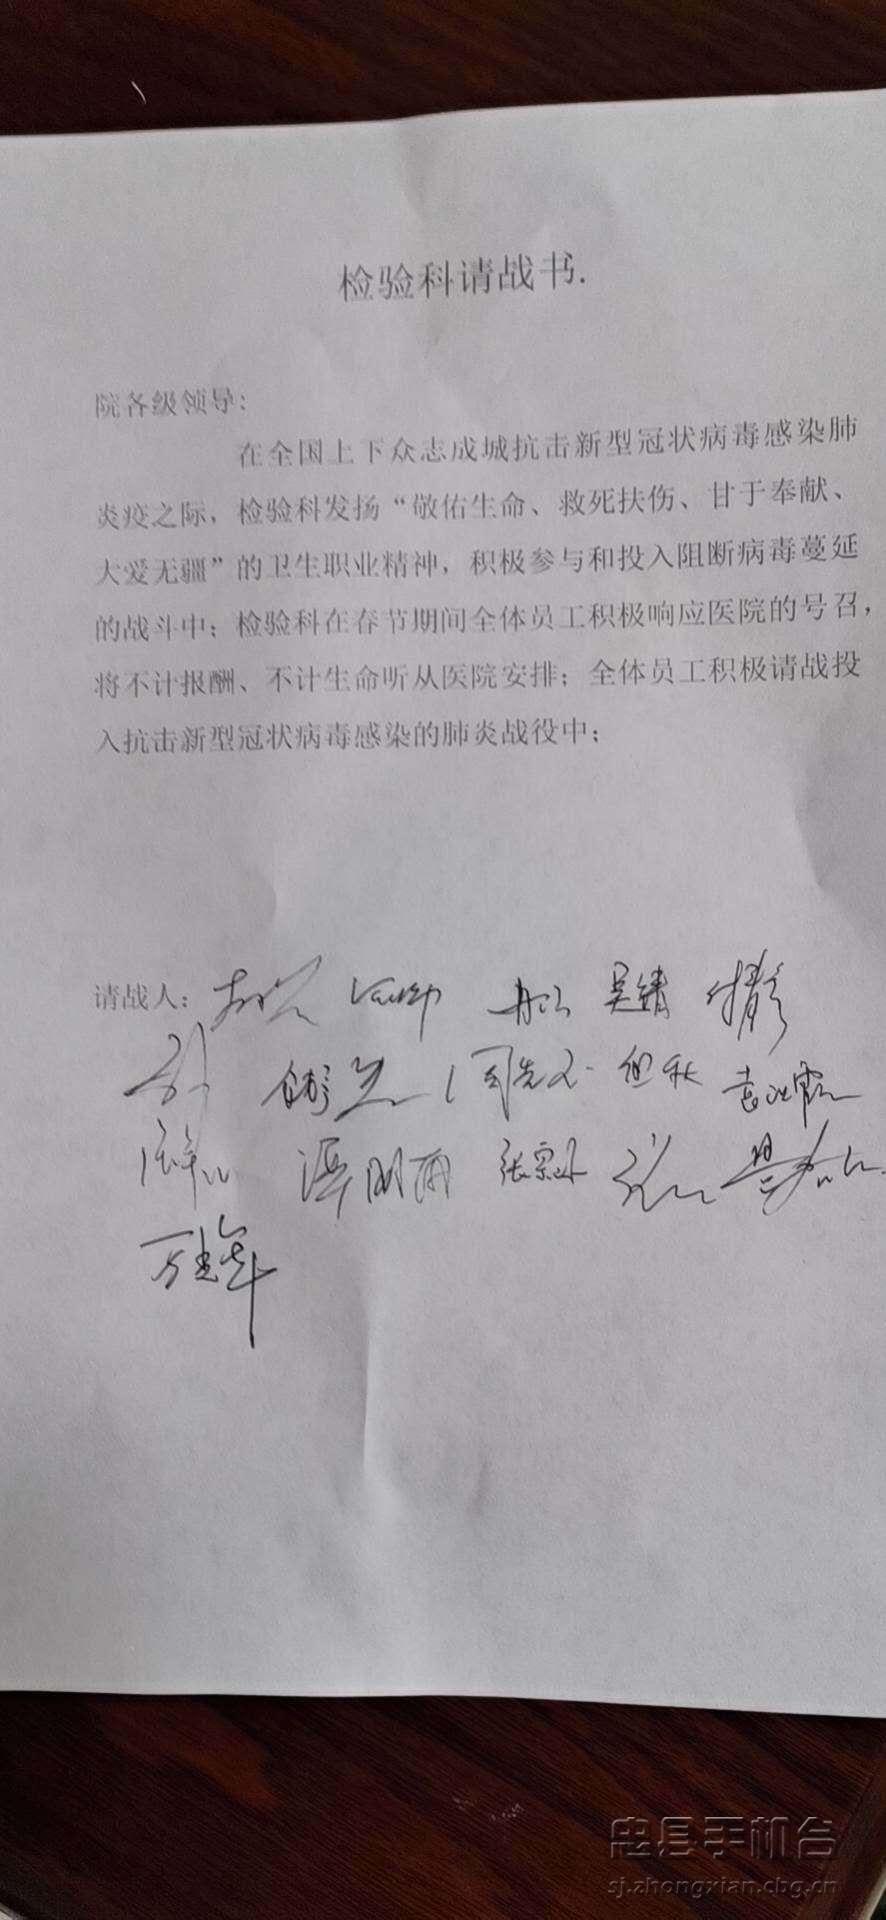 检验科请战书.
院各级领导：
在全国上下众志成城抗击新型冠状病毒感染肺
炎疫之际，检验科发扬“敬佑生命、救死扶伤、甘于奉献、
大爱无疆”的卫生职业精神，积极参与和投入阻断病毒蔓延
的战斗中；检验科在春节期间全体员工积极响应医院的号召，
将不计报酬、不计生命听从医院安排；全体员工积极请战投
入抗击新型冠状病毒感染的肺炎战役中；
请战人： 吴靖
但秋
谭明雨 张宗
忠县手机台
sj.zhongxian.cbg.cn